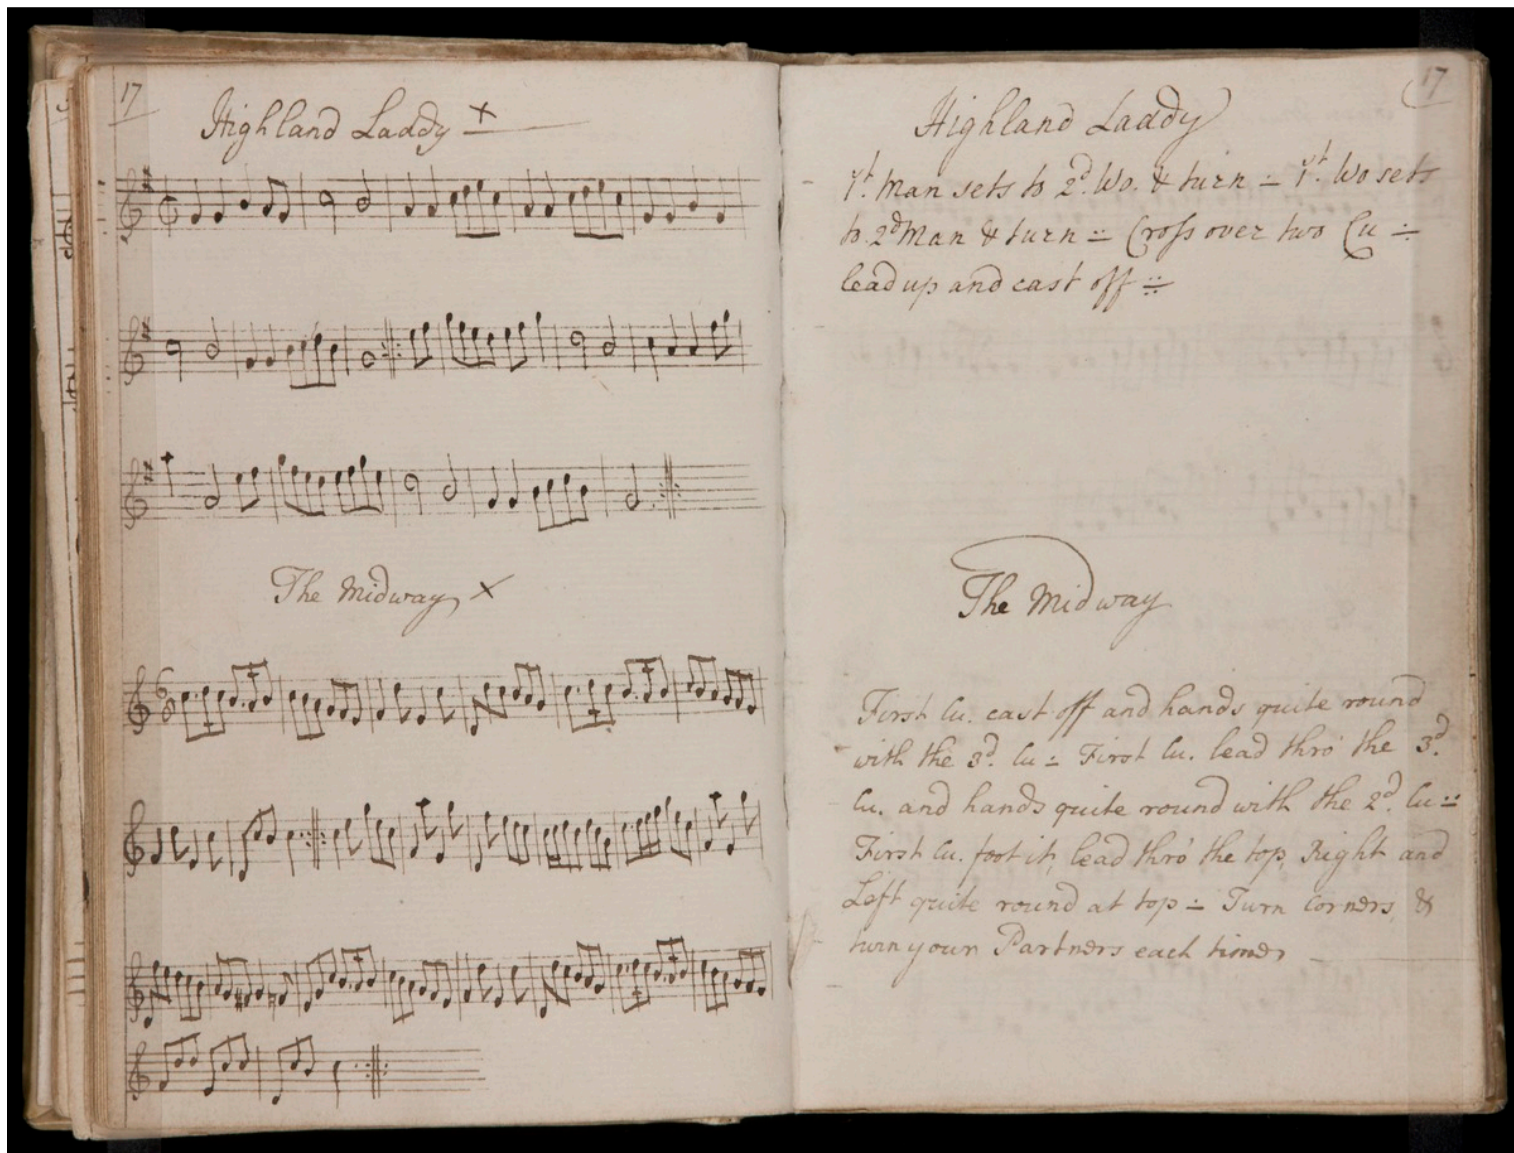 17
Highland Laddy
The Midway
17
Highland Laddy
1st. Man sets to 2d. Wo. & turn ∸ 1st. Wo sets
to 2d Man & turn ∺ Cross over two Cu ∸
lead up and cast off ∺
The Midway
First Cu. cast off and hands quite round
with the 3d. Cu ∸ First Cu. lead thro' the 3d.
Cu. and hands quite round with the 2d. Cu ∺
First Cu. foot it, lead thro' the top, Right and
Left quite round at top ∸ Turn Corners, &
turn your Partners each time